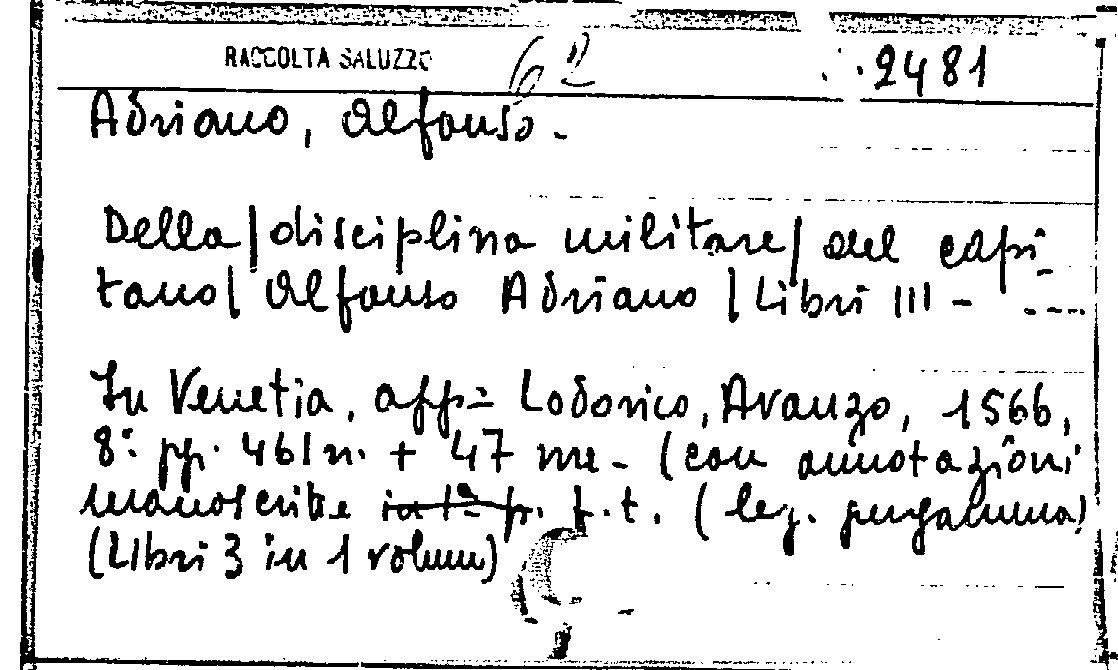 RACCOLTA SALUZZO 62 2481
Adriano, Alfonso.
Della/disciplina militare/del capi-
tano/Alfonso Adriano/Libri III -
In Venetia, app= Lodovico, Avanzo, 1566,
8° pp. 461 n. + 47 nn. (con annotazioni
manoscritte f.t. (leg. pergamena)
(Libri 3 in 1 volume)